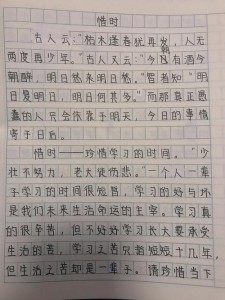 惜时
古人云：“枯木逢春犹再发，人无
两度再少年。”古人又云：“今朝有酒今
朝醉，明日愁来明日愁。”智者知“明
日复明日，明日何其多。”而那真正愚
蠢的人只会依靠于明天，今日的事情
寄于日后。
惜时——珍惜学习的时间。“少
壮不努力，老大徒伤悲。”一个人一辈
子学习的时间很短暂，学习的好与坏
是我们未来生活命运的主宰。学习真
的很辛苦，但不好好学习长大要承受
生活的苦，学习之苦只指短短十几年，
但生活之苦却是一辈子。请珍惜当下